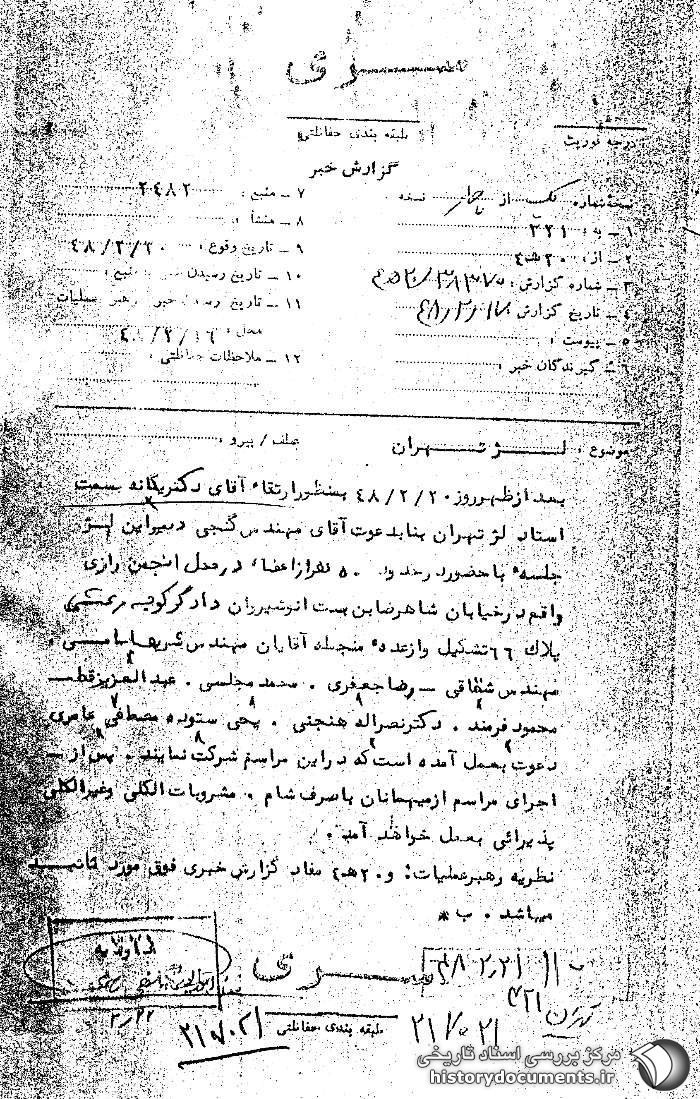 سری
طبقه بندی حفاظتی
درجه فوریت
گزارش خبر
نسخه شماره یک از چهار نسخه
۱ ـ به : ۳۲۱
۲ ـ از : ۲۰ هـ ٤
۳ ـ شماره گزارش :
٤ ـ تاریخ گزارش :
۵ ـ پیوست :
٦ ـ گیرندگان خبر :
۷ ـ منبع : ۲٤۸۲
۸ ـ منشأ :
۹ ـ تاریخ وقوع : ٤۸/۲/۲۰
۱۰ ـ تاریخ رسیدن خبر به منبع :
۱۱ ـ تاریخ رسیدن خبر به رهبر عملیات
محل : ٤۸/۲/۱٦
۱۲ ـ ملاحظات حفاظتی :
موضوع : لژ تهران
عطف / پیرو :
بعد از ظهر روز ٤۸/۲/۲۰ بمنظور ارتقاء آقای دکتر یگانه بسمت
استاد لژ تهران بنا بدعوت آقای مهندس گنجی دبیر این لژ
جلسه‌ء با حضور در حدود ۵۰ نفر از اعضاء در محل انجمن رازی
واقع در خیابان شاهرضا بن بست انوشیروان دادگر کوچه
پلاك ٦٦ تشکیل و از عده‌ء منجمله آقایان مهندس شریف امامی .
مهندس شقاقی ـ رضا جعفری . محمد مجلسی . عبدالعزیز
محمود فرمند . دکتر نصراله هنجنی . یحی ستوده مصطفی عامری
دعوت بعمل آمده است که در این مراسم شرکت نمایند . پس از ـ
اجرای مراسم از میهمانان با صرف شام . مشروبات الکلی و غیر الکلی
پذیرائی بعمل خواهد آمد .
نظریه رهبر عملیات : و ۲۰ هـ ٤ مفاد گزارش خبری فوق مورد تائید
میباشد . ب*
سری
طبقه بندی حفاظتی
مرکز بررسی اسناد تاریخی
historydocuments.ir